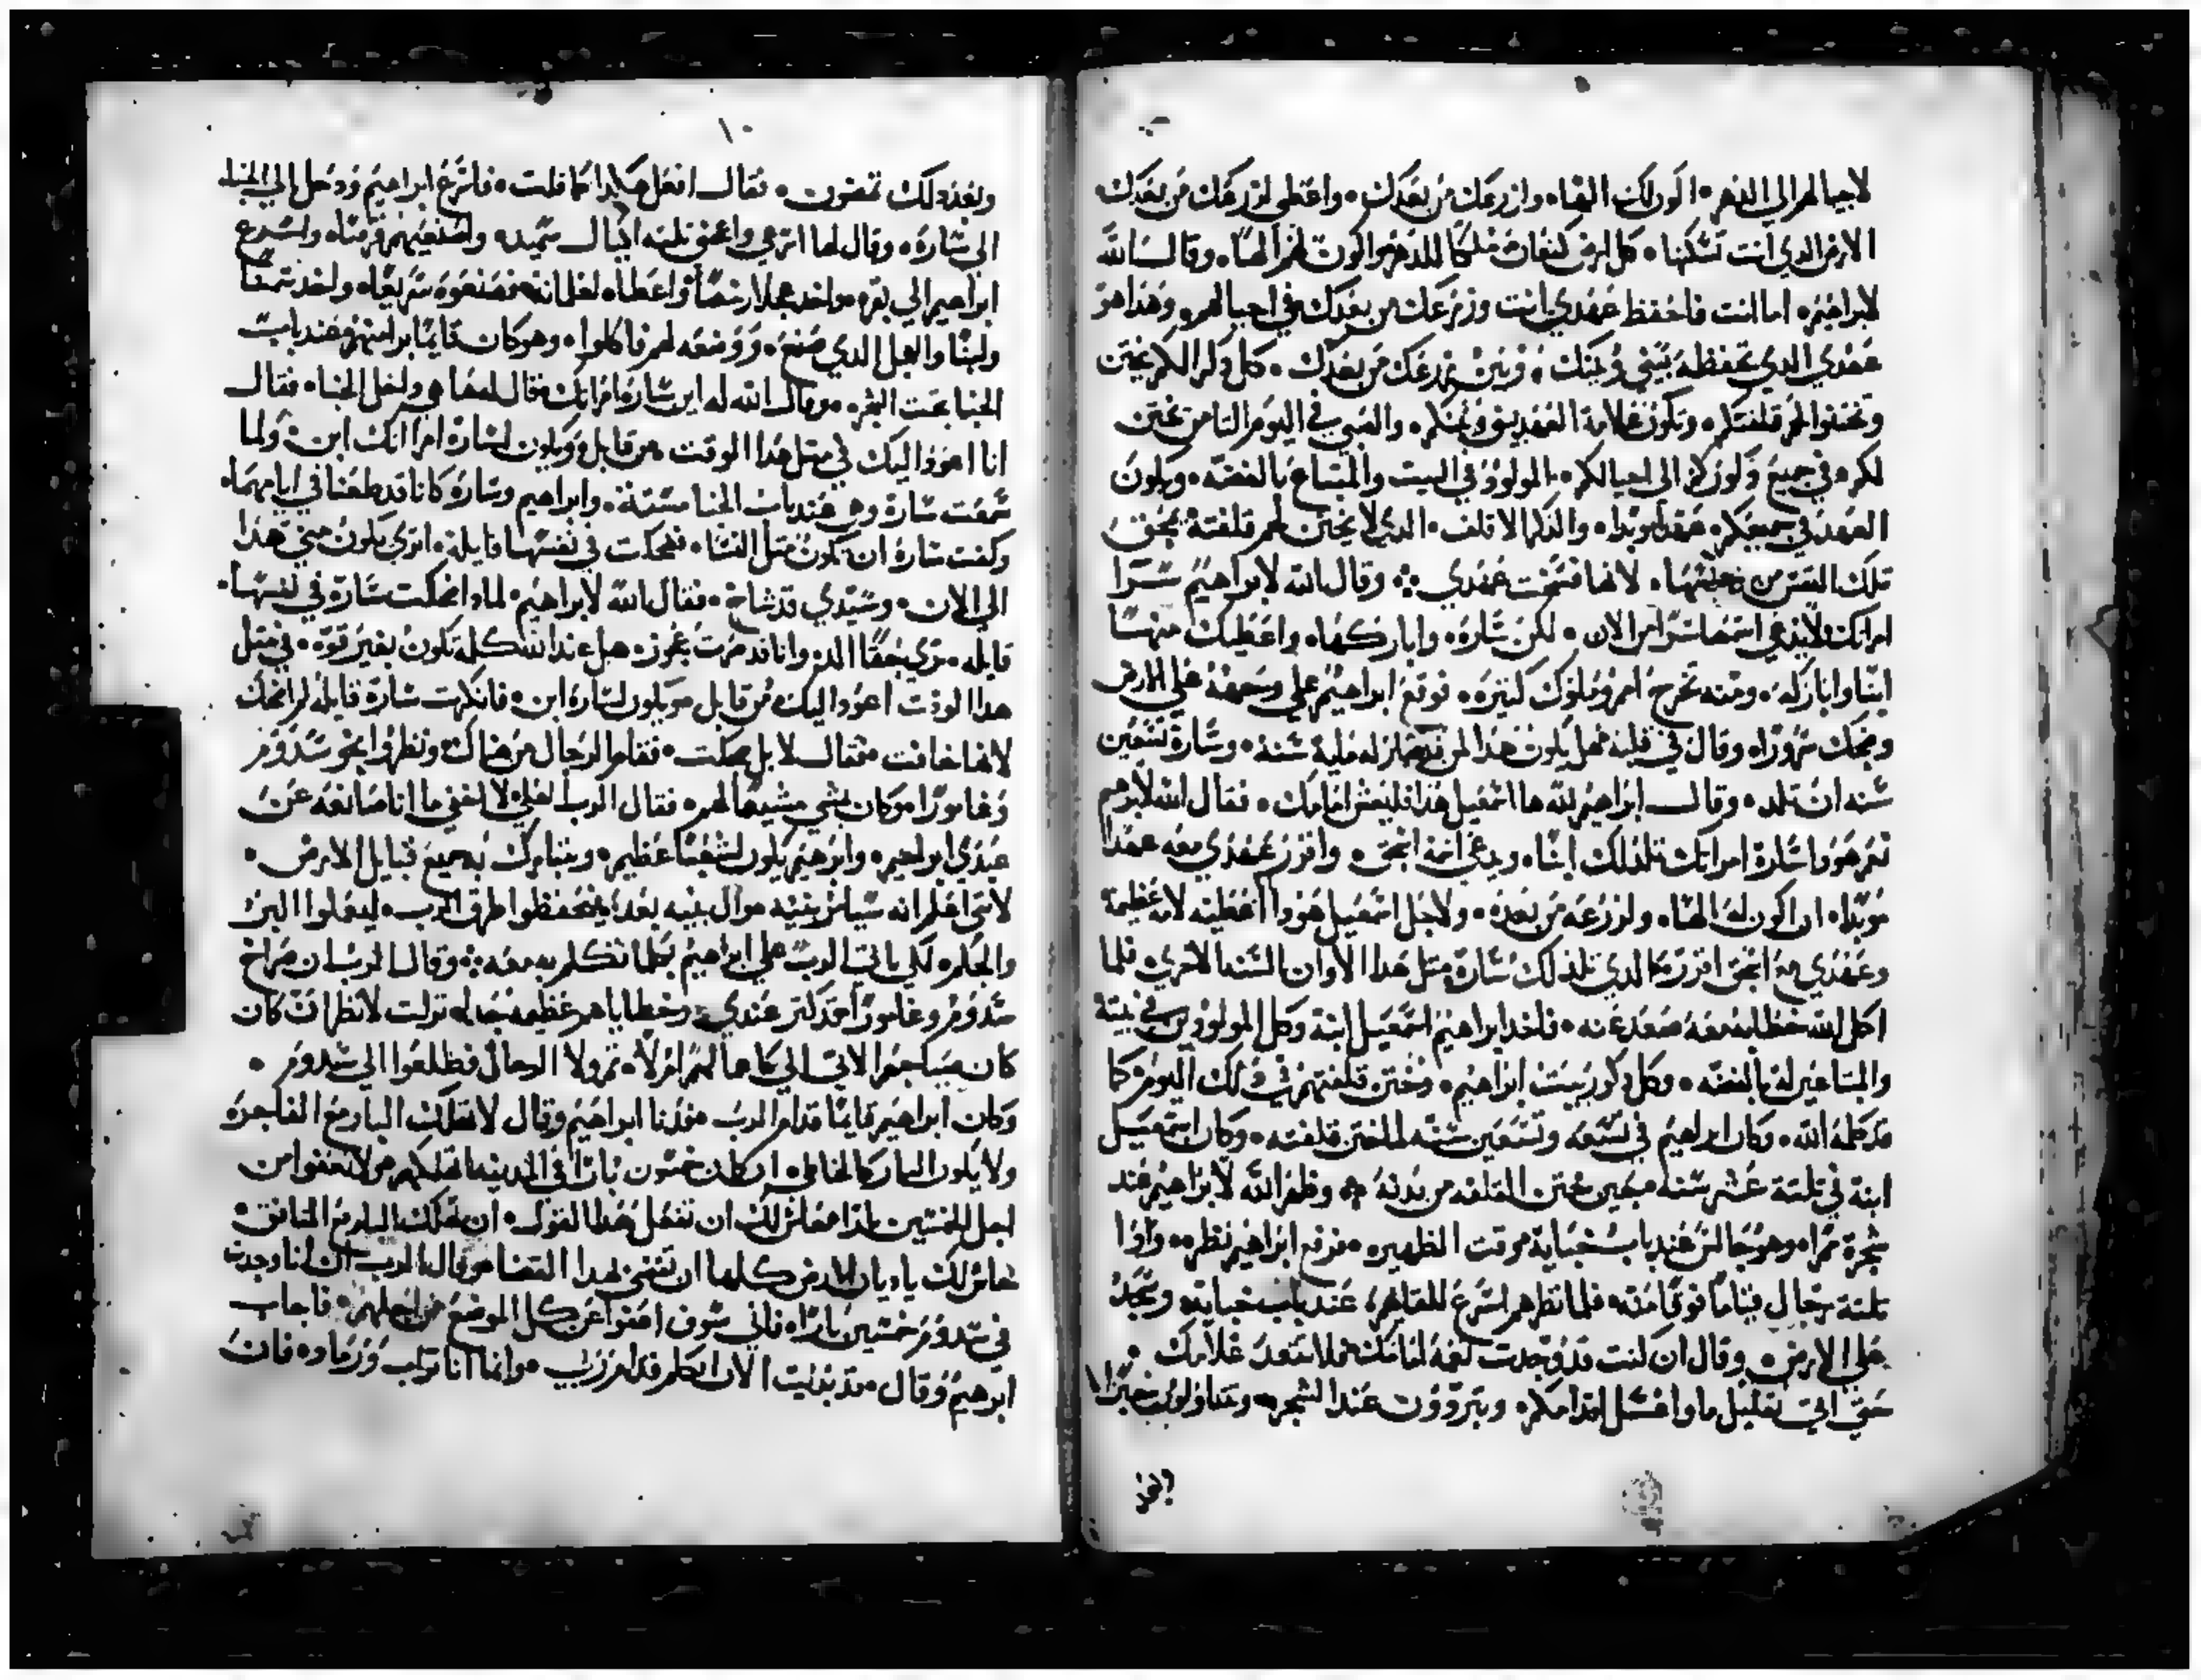 لاجيالهم الي الدهر. اكون لك الها. ولزرعك من بعدك. واعطي لزرعك من بعدك
الارض الدي انت تسكنها. كل ارض كنعان ملكا للدهر واكون لهم الها. وقال الله
لابراهيم. اما انت فاحفظ عهدي انت وزرعك من بعدك في اجيالهم. وهدا هو
عهدي الدي تحفظه بيني وبينك. وبين زرعك من بعدك. كل دكر لكم يختن
وتختنوا لحم قلفتكم. وتكون علامة العهد بيني وبينكم. والصبي في اليوم التامن يختن
لكم. في جميع دكوركم الي اجيالكم. المولود في البيت والمبتاع بالفضه. ويكون
العهد في جميعكم. عهد موبدا. والدكر الاقلف. الدي لا يختن لحم قلفته تحق
تلك النفس من قبيلتها. لانها فسخت عهدي. وقال الله لابراهيم سرا
امراتك لا يدعي اسمها سرا من الان. لكن ساره. واباركها. واعطيك منها
ابنا واباركه. ومنه تخرج امم وملوك كتيره. فوقع ابراهيم علي وجهه علي الارض
وضحك سرورا. وقال في قلبه هل يكون هدا لمن له مايه سنه. وساره تسعين
سنه ان تلد. وقال ابراهيم لله ها اسمعيل هدا فليعش امامك. فقال الله لابرهم
نعم هودا ساره امراتك تلد لك ابنا. ويدعي اسمه اسحق. واقرر عهدي معه عهدا
موبدا. ان اكون له الها. ولزرعه من بعده. ولاجل اسمعيل هودا اعطيته لامه عظيمة
وعهدي مع اسحق اقرره الدي تلد لك ساره متل هدا الاوان السنه الاخري فلما
اكمل الله خطابه معه صعد عنه. فاخد ابراهيم اسمعيل ابنه وكل المولودين في بيته
والمبتاعين له بالفضه. وكل دكور بيت ابراهيم. وختن قلفتهم في دلك اليوم. كما
قد كلمه الله. وكان ابراهيم في تسعه وتسعين سنه لما ختن قلفته. وكان اسمعيل
ابنه في تلتة عشر سنه حين ختن القلفه من بدنه. وظهر الله لابراهيم عند
شجرة ممرا. وهو جالس عند باب خبايه وقت الظهيره. فرفع ابراهيم نظره. وادا
تلتة رجال قياما فوقا منه. فلما نظرهم اسرع للقاهم. عند باب خبايه. وسجد
علي الارض. وقال ان كنت قد وجدت نعمه امامك فلا تبعد غلامك.
حتي اتي بقليل ما واغسل اقدامكم. وتبردون عند الشجره. وتناولون خبزا
١٠
وبعد دلك تمضون. فقال افعل هكدا كما قلت. فاسرع ابراهيم ودخل الي الخبا
الي ساره. وقال لها اسرعي واعجني تلته اكيال سميد. واصنعيهم فرمتاه. واسرع
ابراهيم الي بقره. واخد عجلا رخصا واعطاه لغلمانه فصنعوه سريعا. واخد سمنا
ولبنا والعجل الدي صنع. ووضعه لهم فاكلوا. وهو كان قايما برا منهم عند باب
الخبا تحت الشجره. وقال الله له اين ساره امراتك قال له ها هي داخل الخبا. فقال
انا اعود اليك في متل هدا الوقت من قابل ويكون لساره امراتك ابن. ولما
سمعت سارة وهي عند باب الخبا مستنة. وابراهيم وساره كانا قد طعنا في ايامهما.
وكفت ساره ان تكون متل النسا. فضحكت في نفسها قايله. اتري يكون مني هدا
الي الان. وسيدي قد شاخ. فقال الله لابراهيم. لمادا ضحكت سارة في نفسها.
قايله. تري حقا الد. وانا قد صرت عجوز. هل عند الله كلمة تكون بغير قوة. في متل
هدا الوقت اعود اليك من قابل ويكون لساره ابن. فانكرت سارة قايله لم اضحك
لانها خافت. فقال لا بل ضحكت. فقام الرجال من هناك ونظروا نحو سدوم
وغامورا. وكان يمشي مشيعا لهم. فقال الرب لعلي لا اخفي ما انا صانعه عن
عبدي ابراهيم. وابرهيم يكون لشعبا عظيم. ويتبارك به جميع قبايل الارض.
لاني اعلم انه سيامر بنيه وال بيته بعده. ليحفظوا طرق الرب. ليعملوا البر
والحكم. لكي ياتي الرب علي ابراهيم بكلما تكلم به معه. وقال الرب ان صراخ
سدوم وغامورا قد كتر عندي. وخطاياهم عظيمة جدا. نزلت لانظر ان كان
كان صياحهم الاتي الي كاعمالهم ام لا. تم ولا الرجال فطلعوا الي سدوم.
وكان ابراهيم قايما قدام الرب. فدنا ابراهيم وقال لا تهلك البار مع الفاجر
ولا يكون البار كالخاطي. ان كان خمسون بارا في المدينه اتهلكهم ولا تعفوا من
اجل الخمسين بارا. حاش لك ان تفعل هدا القول. ان تهلك البار مع المنافق.
حاش لك يا ديان الارض كلها ان تقضي بهدا القضا. وقال الرب ان انا وجدت
في سدوم خمسين بارا. فاني سوف اعفوا عن كل الموضع من اجلهم. فاجاب
ابرهيم وقال. قد بديت الان اكلم قدام ربي. وانما انا تراب ورماد. فان